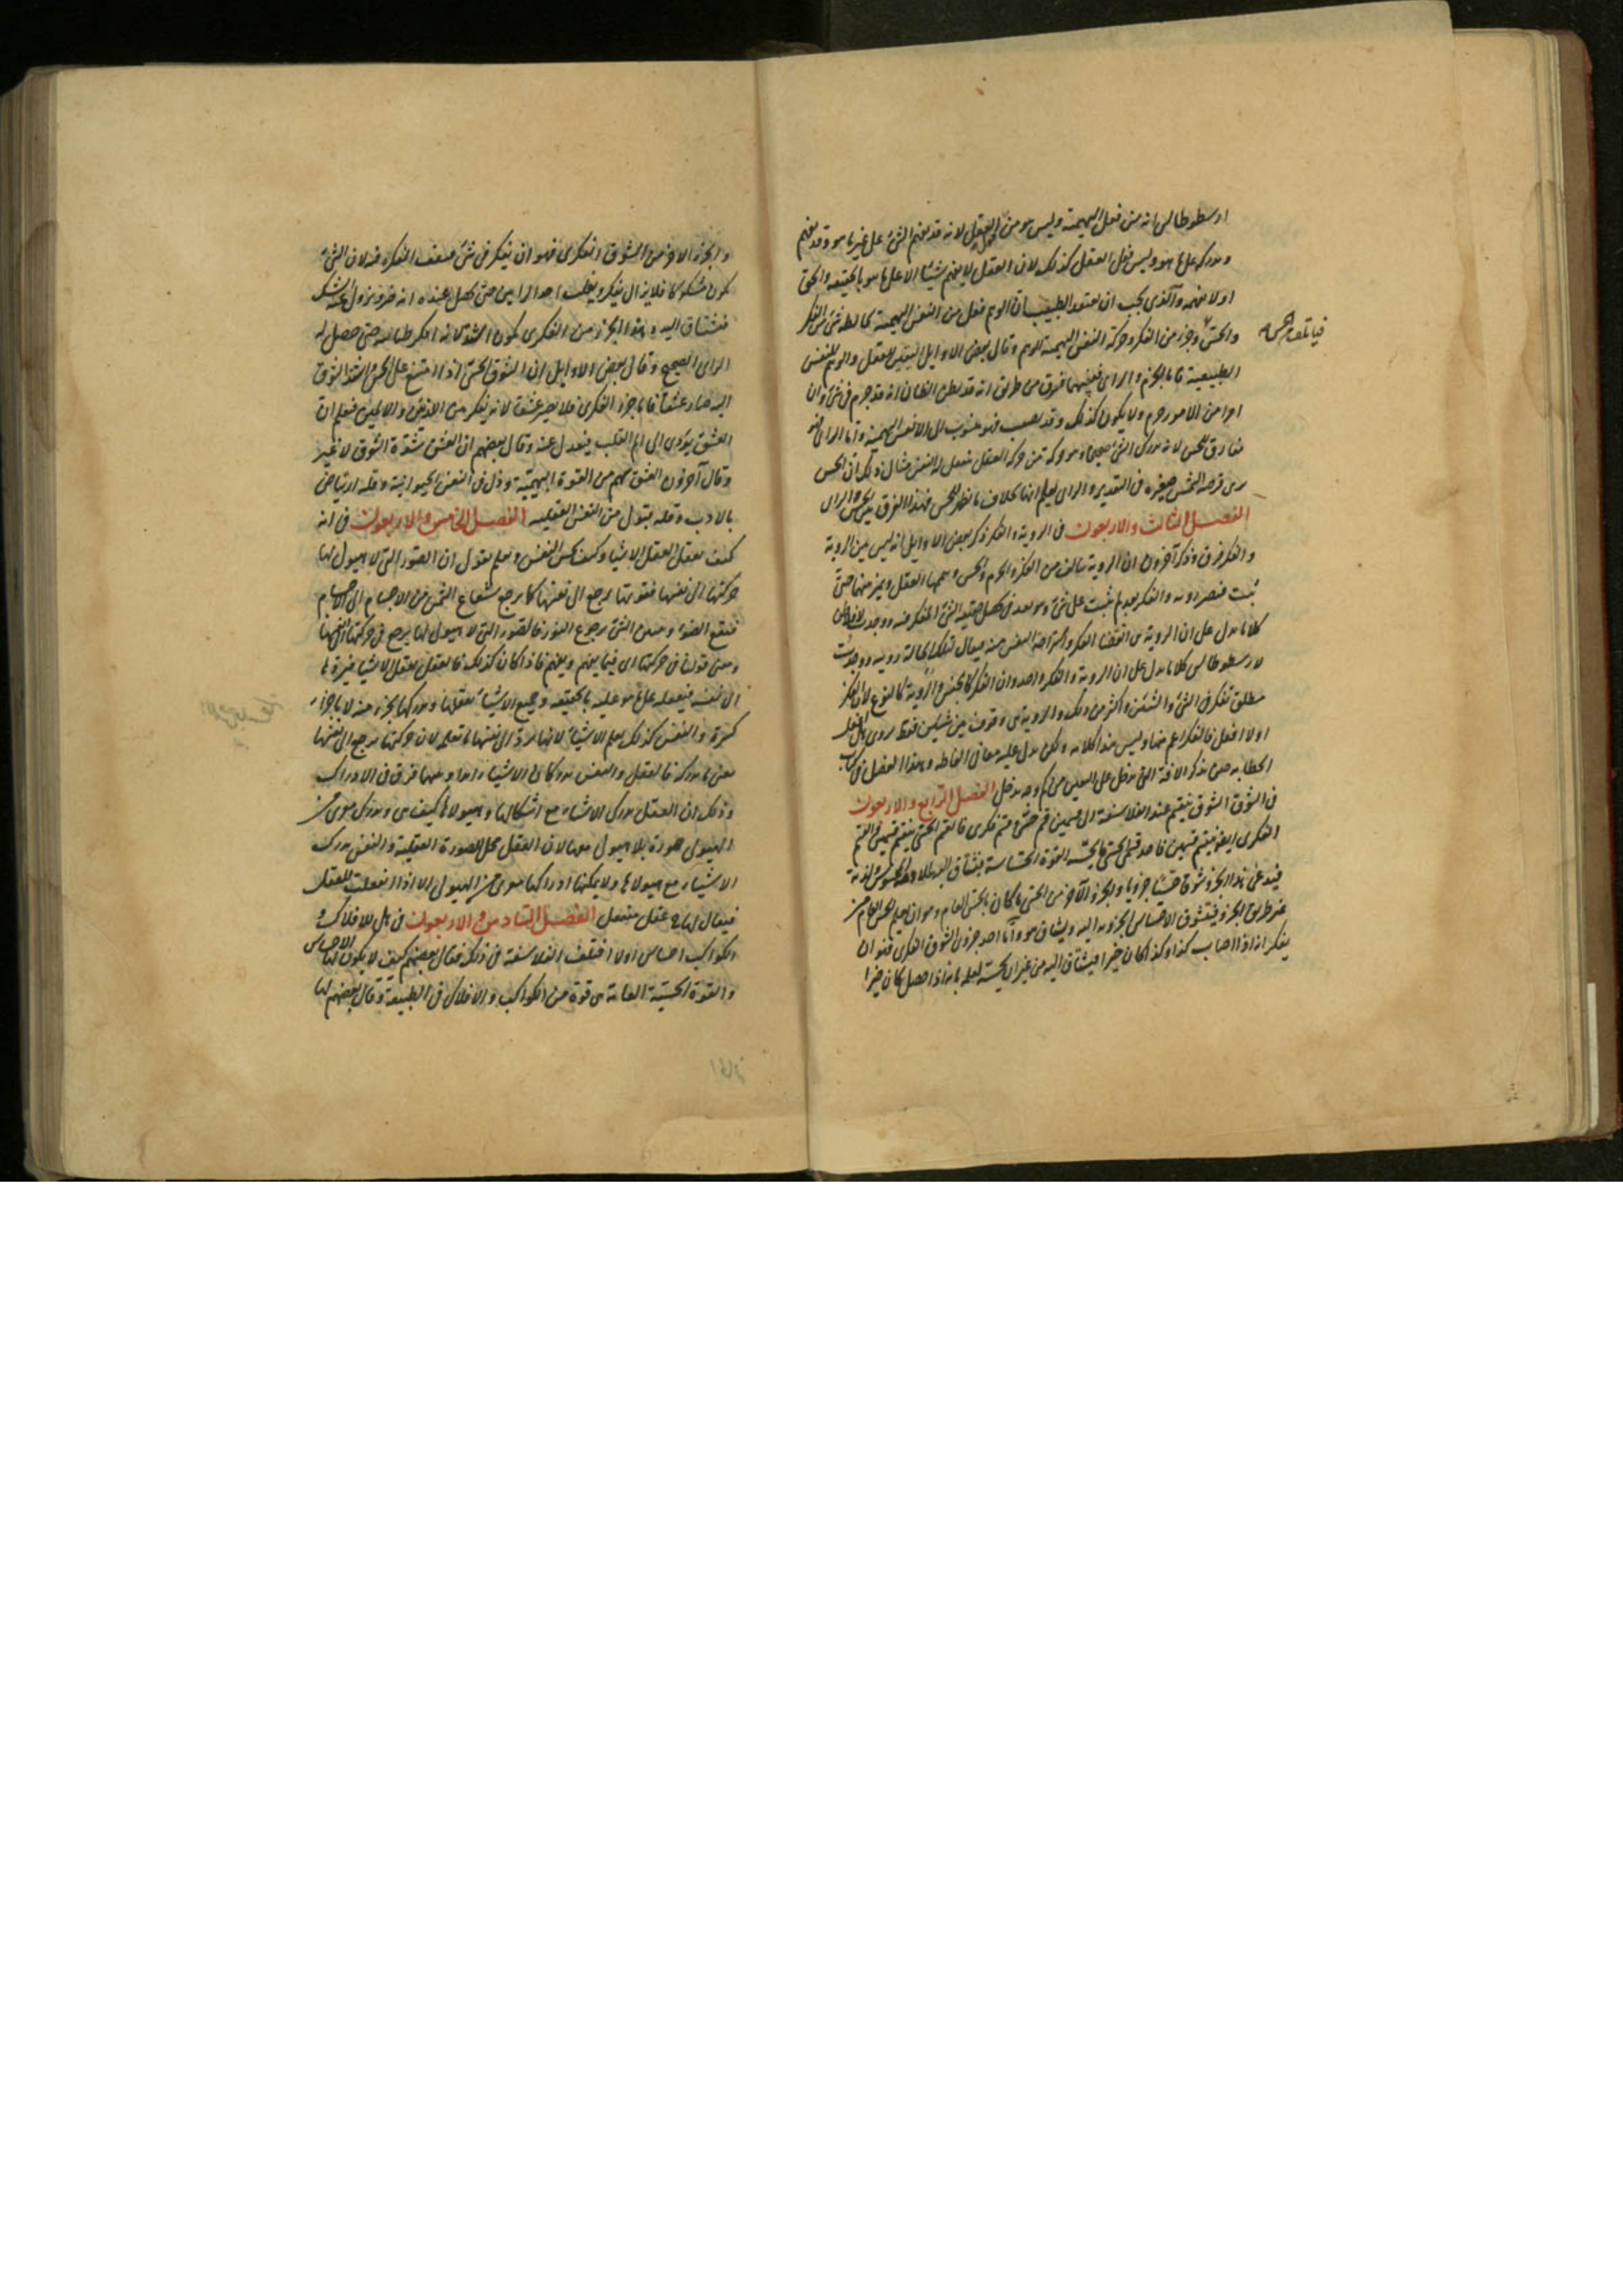 ارسطوطالس انه من فعل البهيمية وليس هو من العقل لانه قد يفهم الشئ على غير ما هو وقد يفهم
ويدركه على ما هو وليس فعل العقل كذلك لان العقل لا يفهم شيئا الا على ما هو بالحقيقة والحق
اولا يفهمه والذى يجب ان يعتقد الطبيب ان الوهم فعل من النفس البهيمية يخالطه شئ من الفكر
والحس وجزء من الفكر وحركة النفس البهيمية الوهم وقال بعض الاوايل اليقين للعقل والوهم للنفس
الطبيعية فاما الجزم والراى فبينهما فرق من طريق انه قد يظن الظان انه قد جزم فى شئ وان
امرا من الامور جزم ولا يكون كذلك وقد يصيب فهو منسوب الى الانفس البهيمية واما الراى فهو
مفارق للحس لانه يدرك الشئ وهو حركة من حركة العقل تفعل له النفس مثال ذلك ان الحس
يرى قرصة الشمس صغيرة فى التقدير والراى يعلم انها بخلاف ما تظهر للحس فهذا الفرق بين الحس والراى
الفصل الثالث والاربعون فى الروية والفكر ذكر بعض الاوايل انه ليس بين الروية
والفكر فرق وذكر آخرون ان الروية تتالف من الفكر والجزم والحس وسمها العقل ويميز منها حتى
تثبت فتصير روية والفكر بعد لم يثبت على شئ وهو بعد فى الشئ المفكر فيه ووجدت لافلاطن
كلاما يدل على ان الروية هى انقضا الفكر واستراحة النفس منه فيقال لتلك الحالة روية ووجدت
لارسطوطالس كلاما يدل على ان الروية والفكر واحد وان الفكر كالجنس والروية كالنوع لان الفكر
مطلق تفكر فى الشئ والشيئين واكثر من ذلك والروية هى وقوف بين شيئين فقط يروى هل افعل
اولا افعل فالفكر اعم منها وليس هذا كلامه ولكن يدل عليه معانى الفاظه وهذا الفصل فى كتاب
الخطابة حين يذكر الافة التى تدخل على اليقين من كم وجه يدخل الفصل الرابع والاربعون
فى الشوق الشوق ينقسم عند الفلاسفة الى قسمين قسم حسى وقسم فكرى فالقسم الحسى ينقسم قسمين والقسم
الفكرى ايضا ينقسم قسمين فاحد قسمى الحسى ما يحسه القوة الحساسة فيشتاق اليه
غير طريق الجزء فيتشوق الاحساس الجزوى اليه ويشتاق هو واما احد جزوى الشوق الفكرى فهو ان
يفكر انه اذا اصاب كذا وكذا كان خيرا فيشتاق اليه من غير ان يحسه لعله بانه اذا حصل كان خيرا
والجزء الاخر من الشوق الفكرى فهو ان يفكر فى شئ فيقف الفكر فيه لان الشئ
يكون مشكوكا فلا يزال يفكر ويغلب احد الرايين حتى يحصل عنده انه خير ويزول عنه الشك
فيشتاق اليه وهذا الجزء من الفكرى يكون اشد لانه افكر طالبه حتى حصل له
الراى الصحيح وقال بعض الاوايل ان الشوق الحسى اذا امتنع على الحس واشتد الشوق
اليه صار عشقا فاما جزء الفكرى فلا يصير عشقا لانه يفكر من الاذى والالم فيعلم ان
العشق يؤدى الى الم القلب فيعدل عنه وقال بعضهم ان العشق شدة الشوق لا غير
وقال آخرون العشق سهم من القوة البهيمية وذل فى النفس الحيوانية وقلة ارتياض
بالادب وقلة بتول من النفس العقلية الفصل الخامس والاربعون فى انه
كيف يعقل العقل الاشيا وكيف تحس النفس وتعلم نقول ان الصور التى لا هيولى لها
حركتها الى نفسها فقوتها ترجع الى نفسها كما يرجع شعاع الشمس من الاجسام الى الاجسام
فيقع الضوء وبين الشئ رجوع النور فالصور التى لا هيولى لها يرجع فى حركتها الى نفسها
ومعنى قولنا فى حركتها اى فيما يفهم ويفهم فاذا كان كذلك فالعقل يعقل الاشيا فيردها
الى نفسه فيعقله على ما هو عليه بالحقيقة وجميع الاشياء يعقلها ويدركها بجزء منه لا باجزاء
كثيرة والنفس كذلك يعلم الاشياء لانها ترد الى نفسها ما تعلم لان حركتها ترجع الى نفسها
معنى ما يدركه فالعقل والنفس يدركان الاشياء ابدا وبينهما فرق فى الادراك
وذلك ان العقل يدرك الاشياء مع اشكالها وهيولاها كيف هى ويدرك سوى من
الهيولى صورة بلا هيولى لان العقل محل للصورة العقلية والنفس يدرك
الاشياء مع هيولاها ولا يمكنها ادراكها سوى من الهيولى الا اذا انفعلت للعقل
فيقال لها عقل منفعل الفصل السادس والاربعون فى هل للافلاك و
الكواكب احساس اولا اختلف الفلاسفة فى ذلك فقال بعضهم كيف لا يكون لها الاحساس
والقوة الحسية العامة هى قوة من الكواكب والافلاك فى الطبيعة وقال بعضهم لها